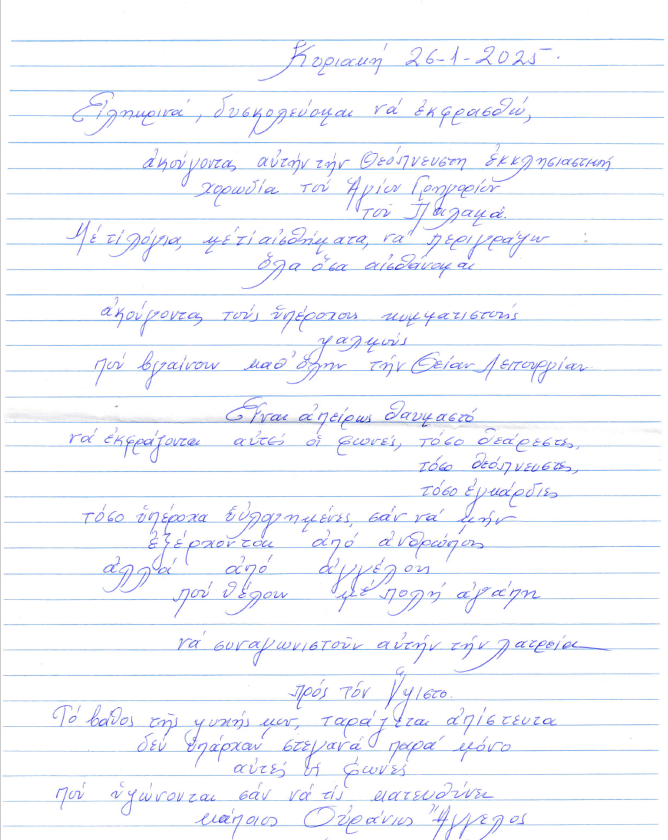 Κυριακή 26-1-2025.
Εἰλικρινά, δυσκολεύομαι νά ἐκφρασθῶ,
ἀκούγοντας αὐτήν τήν Θεόπνευστη ἐκκλησιαστική
χορωδία τοῦ Ἁγίου Γρηγορίου
τοῦ Παλαμᾶ.
Μέ τί λόγια, μέ τί αἰσθήματα, νά περιγράψω :
ὅλα ὅσα αἰσθάνομαι
ἀκούγοντας τούς ὑπέροχους κυμματιστούς
ψαλμούς
πού βγαίνουν καθ' ὅλην τήν Θείαν Λειτουργίαν
Εἶναι ἀπείρως θαυμαστό
νά ἐκφράζονται αὐτές οἱ φωνές, τόσο θεάρεστες,
τόσο θεόπνευστες,
τόσο ἐγκάρδιες
τόσο ὑπέροχα, σάν νά μήν
ἐξέρχονται ἀπό ἀνθρώπους
ἀλλά ἀπό ἀγγέλους
πού θέλουν μέ πολλή ἀγάπη
νά συναγωνιστοῦν αὐτήν τήν λατρεία
πρός τόν Ὕψιστο.
Τό βάθος τῆς ψυχῆς μου, ταράζεται ἀπίστευτα
δέν ὑπάρχουν στεγανά παρά μόνο
αὐτές οἱ φωνές
πού ὑψώνονται σάν νά τίς κατευθύνει
κάποιος Οὐράνιος Ἄγγελος